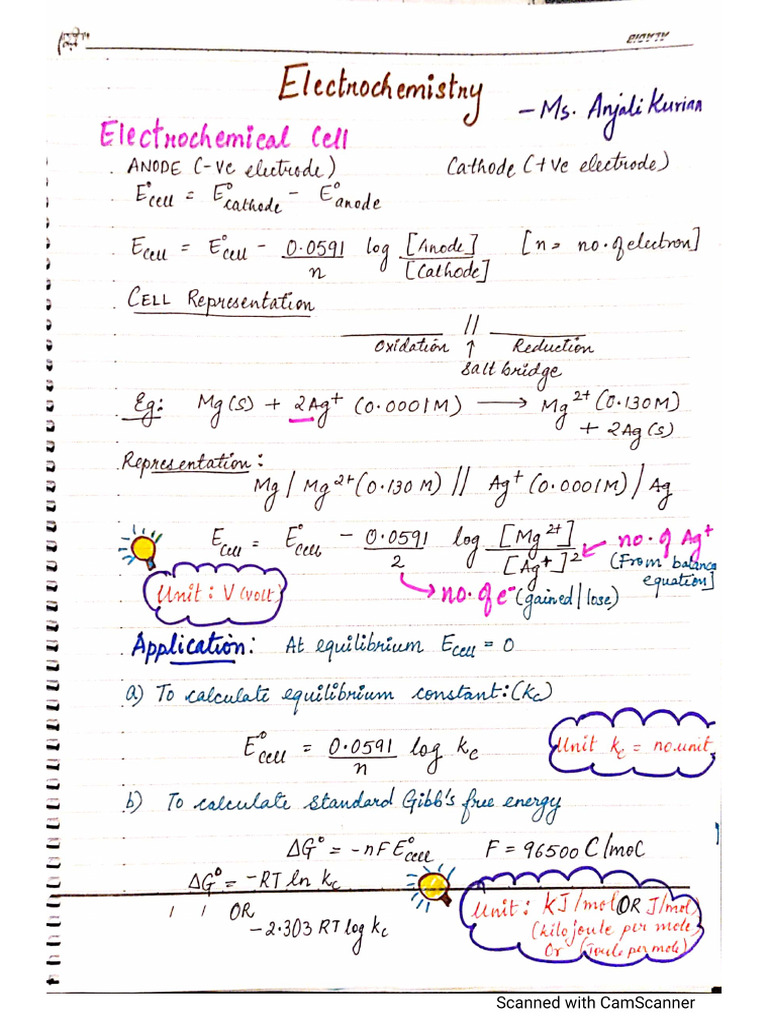 Electrochemistry
- Ms. Anjali Kurian
Electrochemical Cell
ANODE (-ve electrode) Cathode (+ve electrode)
E°cell = E°cathode - E°anode
Ecell = E°cell - 0.0591/n log [Anode]/[Cathode] [n = no. of electron]
CELL Representation
//
Oxidation ↑ Reduction
Salt bridge
Eg: Mg(s) + 2Ag⁺ (0.0001M) ⟶ Mg²⁺(0.130M)
+ 2Ag(s)
Representation:
Mg / Mg²⁺(0.130 M) // Ag⁺(0.0001M) / Ag
Ecell = E°cell - 0.0591/2 log [Mg²⁺]/[Ag⁺]² ← no. of Ag⁺
(From balance
equation]
→ no. of e⁻ (gained/lose)
Unit: V (volt)
Application: At equilibrium Ecell = 0
a) To calculate equilibrium constant: (kc)
E°cell = 0.0591/n log kc
Unit kc = no.unit
b) To calculate standard Gibb's free energy
ΔG° = -nFE°cell F = 96500 C/mol
ΔG° = -RT ln kc
OR
-2.303 RT log kc
Unit: KJ/mol OR J/mol
(kilojoule per mole
Or (Joule per mole)
Scanned with CamScanner